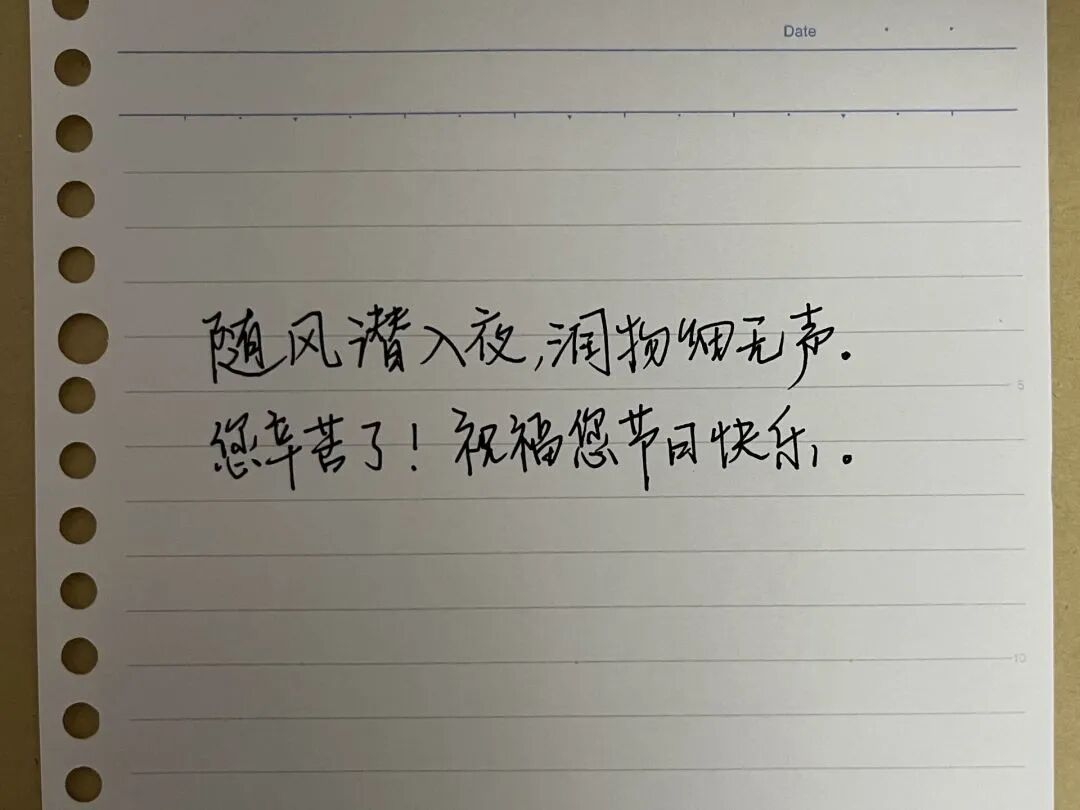 Date
随风潜入夜,润物细无声.
5
您辛苦了!祝福您节日快乐.
10